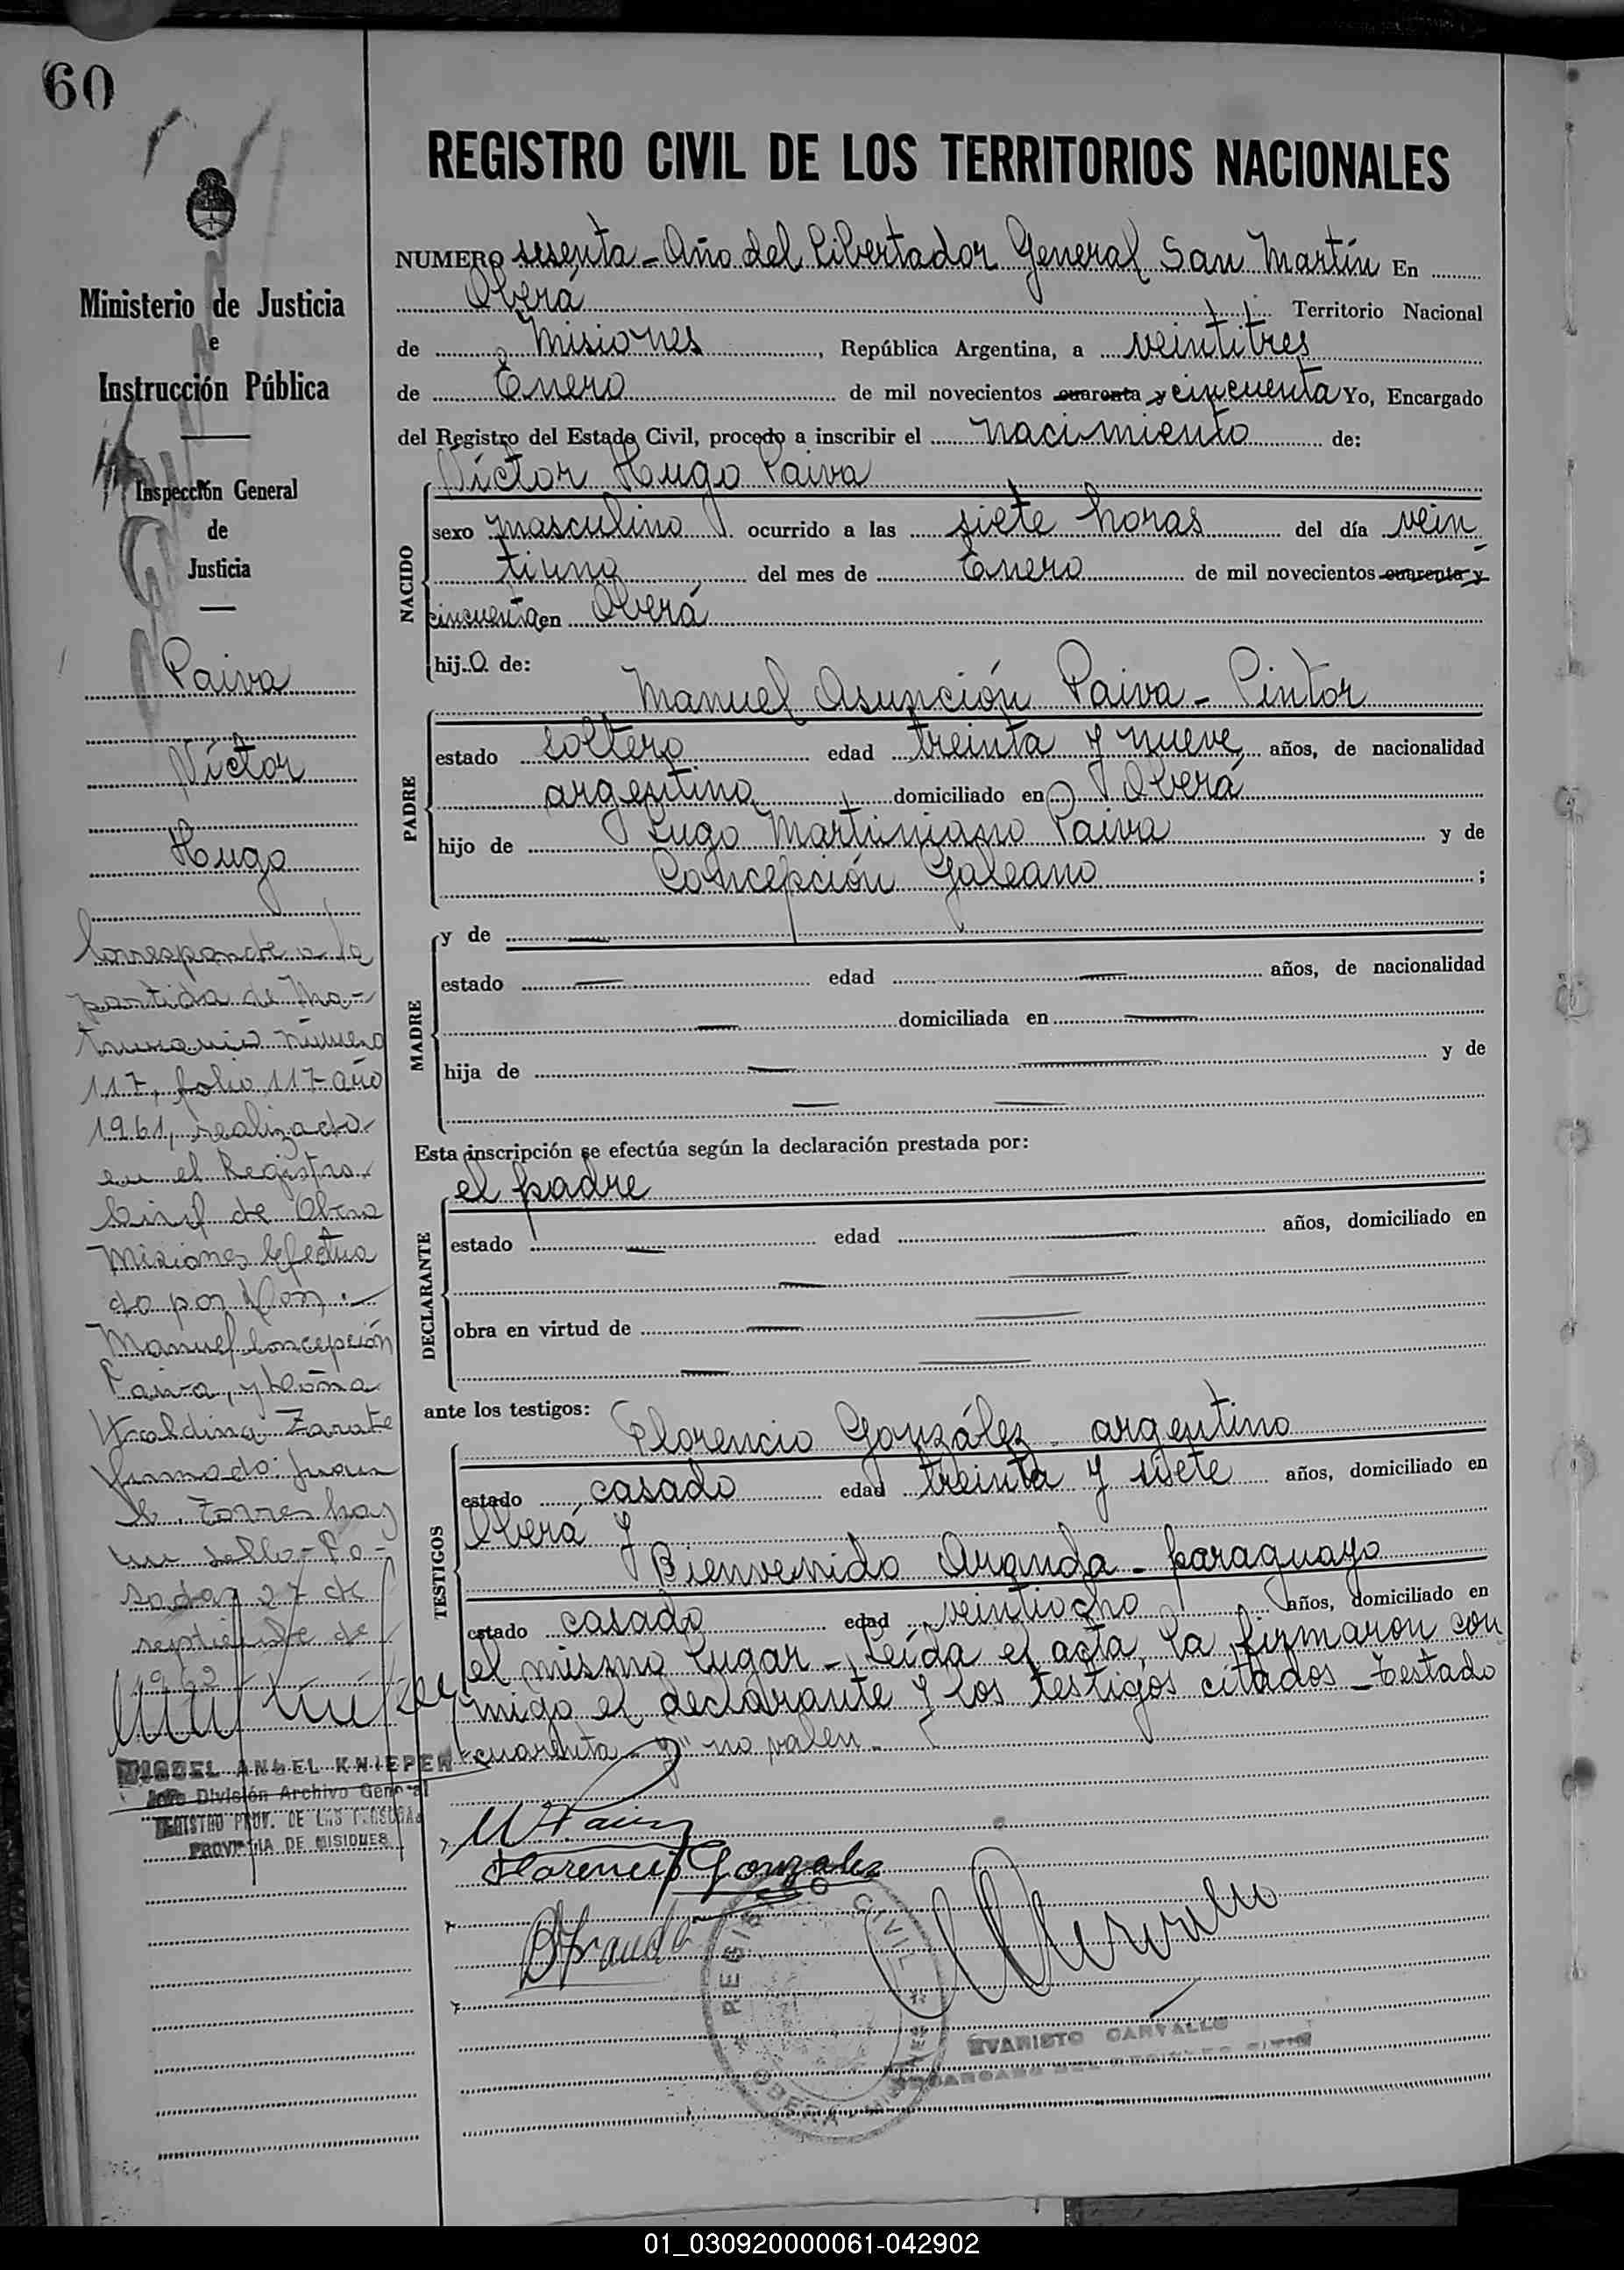 60
REGISTRO CIVIL DE LOS TERRITORIOS NACIONALES
Ministerio de Justicia
e
Instrucción Pública
Inspección General
de
Justicia
Paiva
Víctor
Hugo
Corresponde a la
partida de Ma-
trimonio número
117, folio 117 año
1961, realizado
en el Registro
Civil de Obera
Misiones Efectua
do por Don.-
Manuel Concepción
Paiva, y Doña
Zarate
firmado: Juan
Torres hay
un sello-Po-
sadas 27 de
septiembre de
1962
MIGUEL ANGEL KNIEPER
Jefe División Archivo General
REGISTRO PROV. DE LAS PERSONAS
PROVINCIA DE MISIONES
NUMERO sesenta - Año del Libertador General San Martín En
Oberá Territorio Nacional
de Misiones, República Argentina, a veintitres
de Enero de mil novecientos cuarenta y cincuenta Yo, Encargado
del Registro del Estado Civil, procedo a inscribir el nacimiento de:
Víctor Hugo Paiva
NACIDO
sexo masculino ocurrido a las siete horas del día vein
tiuno del mes de Enero de mil novecientos cuarenta y
cincuenta en Oberá
hijo de:
PADRE
Manuel Asunción Paiva - Pintor
estado soltero edad treinta y nueve años, de nacionalidad
argentino domiciliado en Oberá
hijo de Lugo Martiniano Paiva y de
Concepción Galeano ;
MADRE
y de
estado edad años, de nacionalidad
domiciliada en
hija de y de
Esta inscripción se efectúa según la declaración prestada por:
el padre
DECLARANTE
estado edad años, domiciliado en
obra en virtud de
ante los testigos:
TESTIGOS
Florencio González - argentino
estado casado edad treinta y siete años, domiciliado en
Oberá y
Bienvenido Aranda - paraguayo
estado casado edad veintiocho años, domiciliado en
el mismo lugar - Leída el acta, la firmaron con
migo el declarante y los testigos citados - Testado
"cuarenta y" no valen.-
M A Paiva
Florencio Gonzalez
B Aranda
REGISTRO CIVIL
EVARISTO CARVALLO
ENCARGADO DEL REGISTRO CIVIL
01_030920000061-042902